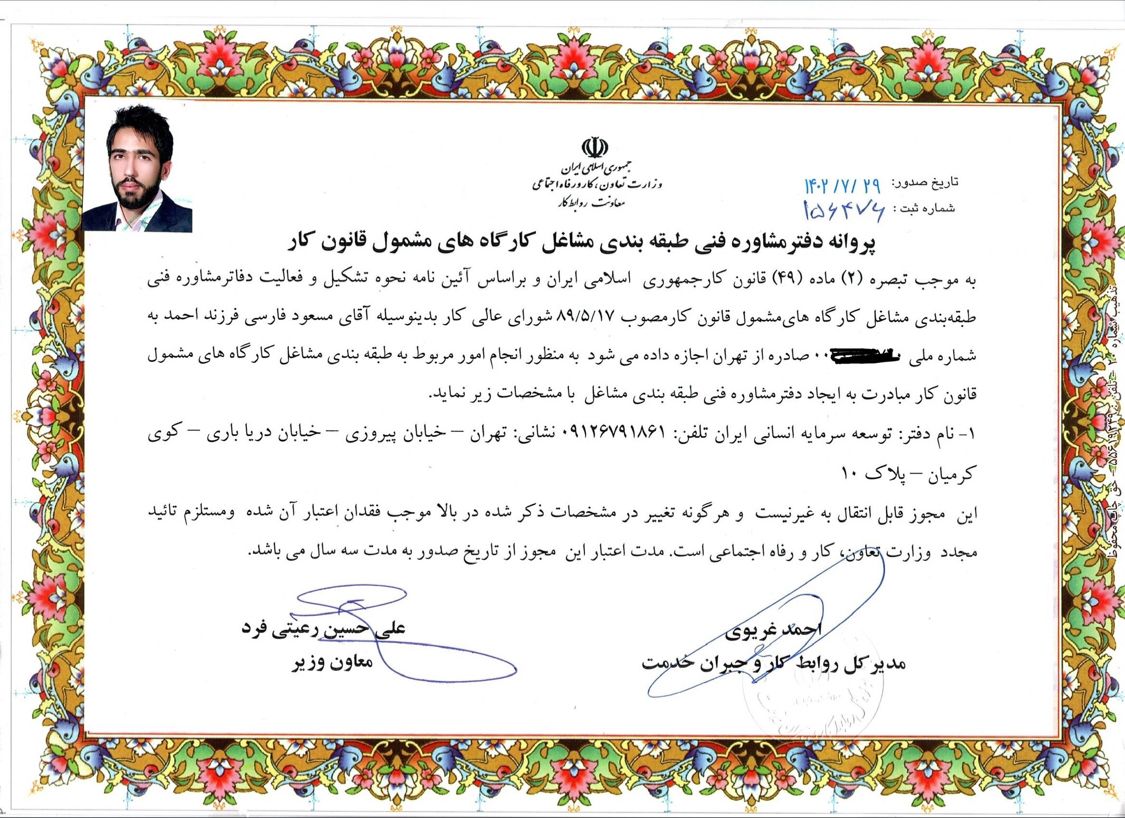 جمهوری اسلامی ایران
وزارت تعاون، کار و رفاه اجتماعی
معاونت روابط کار
تاریخ صدور: ۱۴۰۲/۷/۲۹
شماره ثبت: ۱۵۶۴۷۶
پروانه دفترمشاوره فنی طبقه بندی مشاغل کارگاه های مشمول قانون کار
به موجب تبصره (۲) ماده (۴۹) قانون کارجمهوری اسلامی ایران و براساس آئین نامه نحوه تشکیل و فعالیت دفاترمشاوره فنی
طبقه‌بندی مشاغل کارگاه های‌مشمول قانون کارمصوب ۸۹/۵/۱۷ شورای عالی کار بدینوسیله آقای مسعود فارسی فرزند احمد به
شماره ملی ۰۰ صادره از تهران اجازه داده می شود به منظور انجام امور مربوط به طبقه بندی مشاغل کارگاه های مشمول
قانون کار مبادرت به ایجاد دفترمشاوره فنی طبقه بندی مشاغل با مشخصات زیر نماید.
۱- نام دفتر: توسعه سرمایه انسانی ایران تلفن: ۰۹۱۲۶۷۹۱۸۶۱ نشانی: تهران – خیابان پیروزی – خیابان دریا باری – کوی
کرمیان – پلاک ۱۰
این مجوز قابل انتقال به غیرنیست و هرگونه تغییر در مشخصات ذکر شده در بالا موجب فقدان اعتبار آن شده ومستلزم تائید
مجدد وزارت تعاون، کار و رفاه اجتماعی است. مدت اعتبار این مجوز از تاریخ صدور به مدت سه سال می باشد.
احمد غریوی
مدیرکل روابط کار و جبران خدمت
علی حسین رعیتی فرد
معاون وزیر